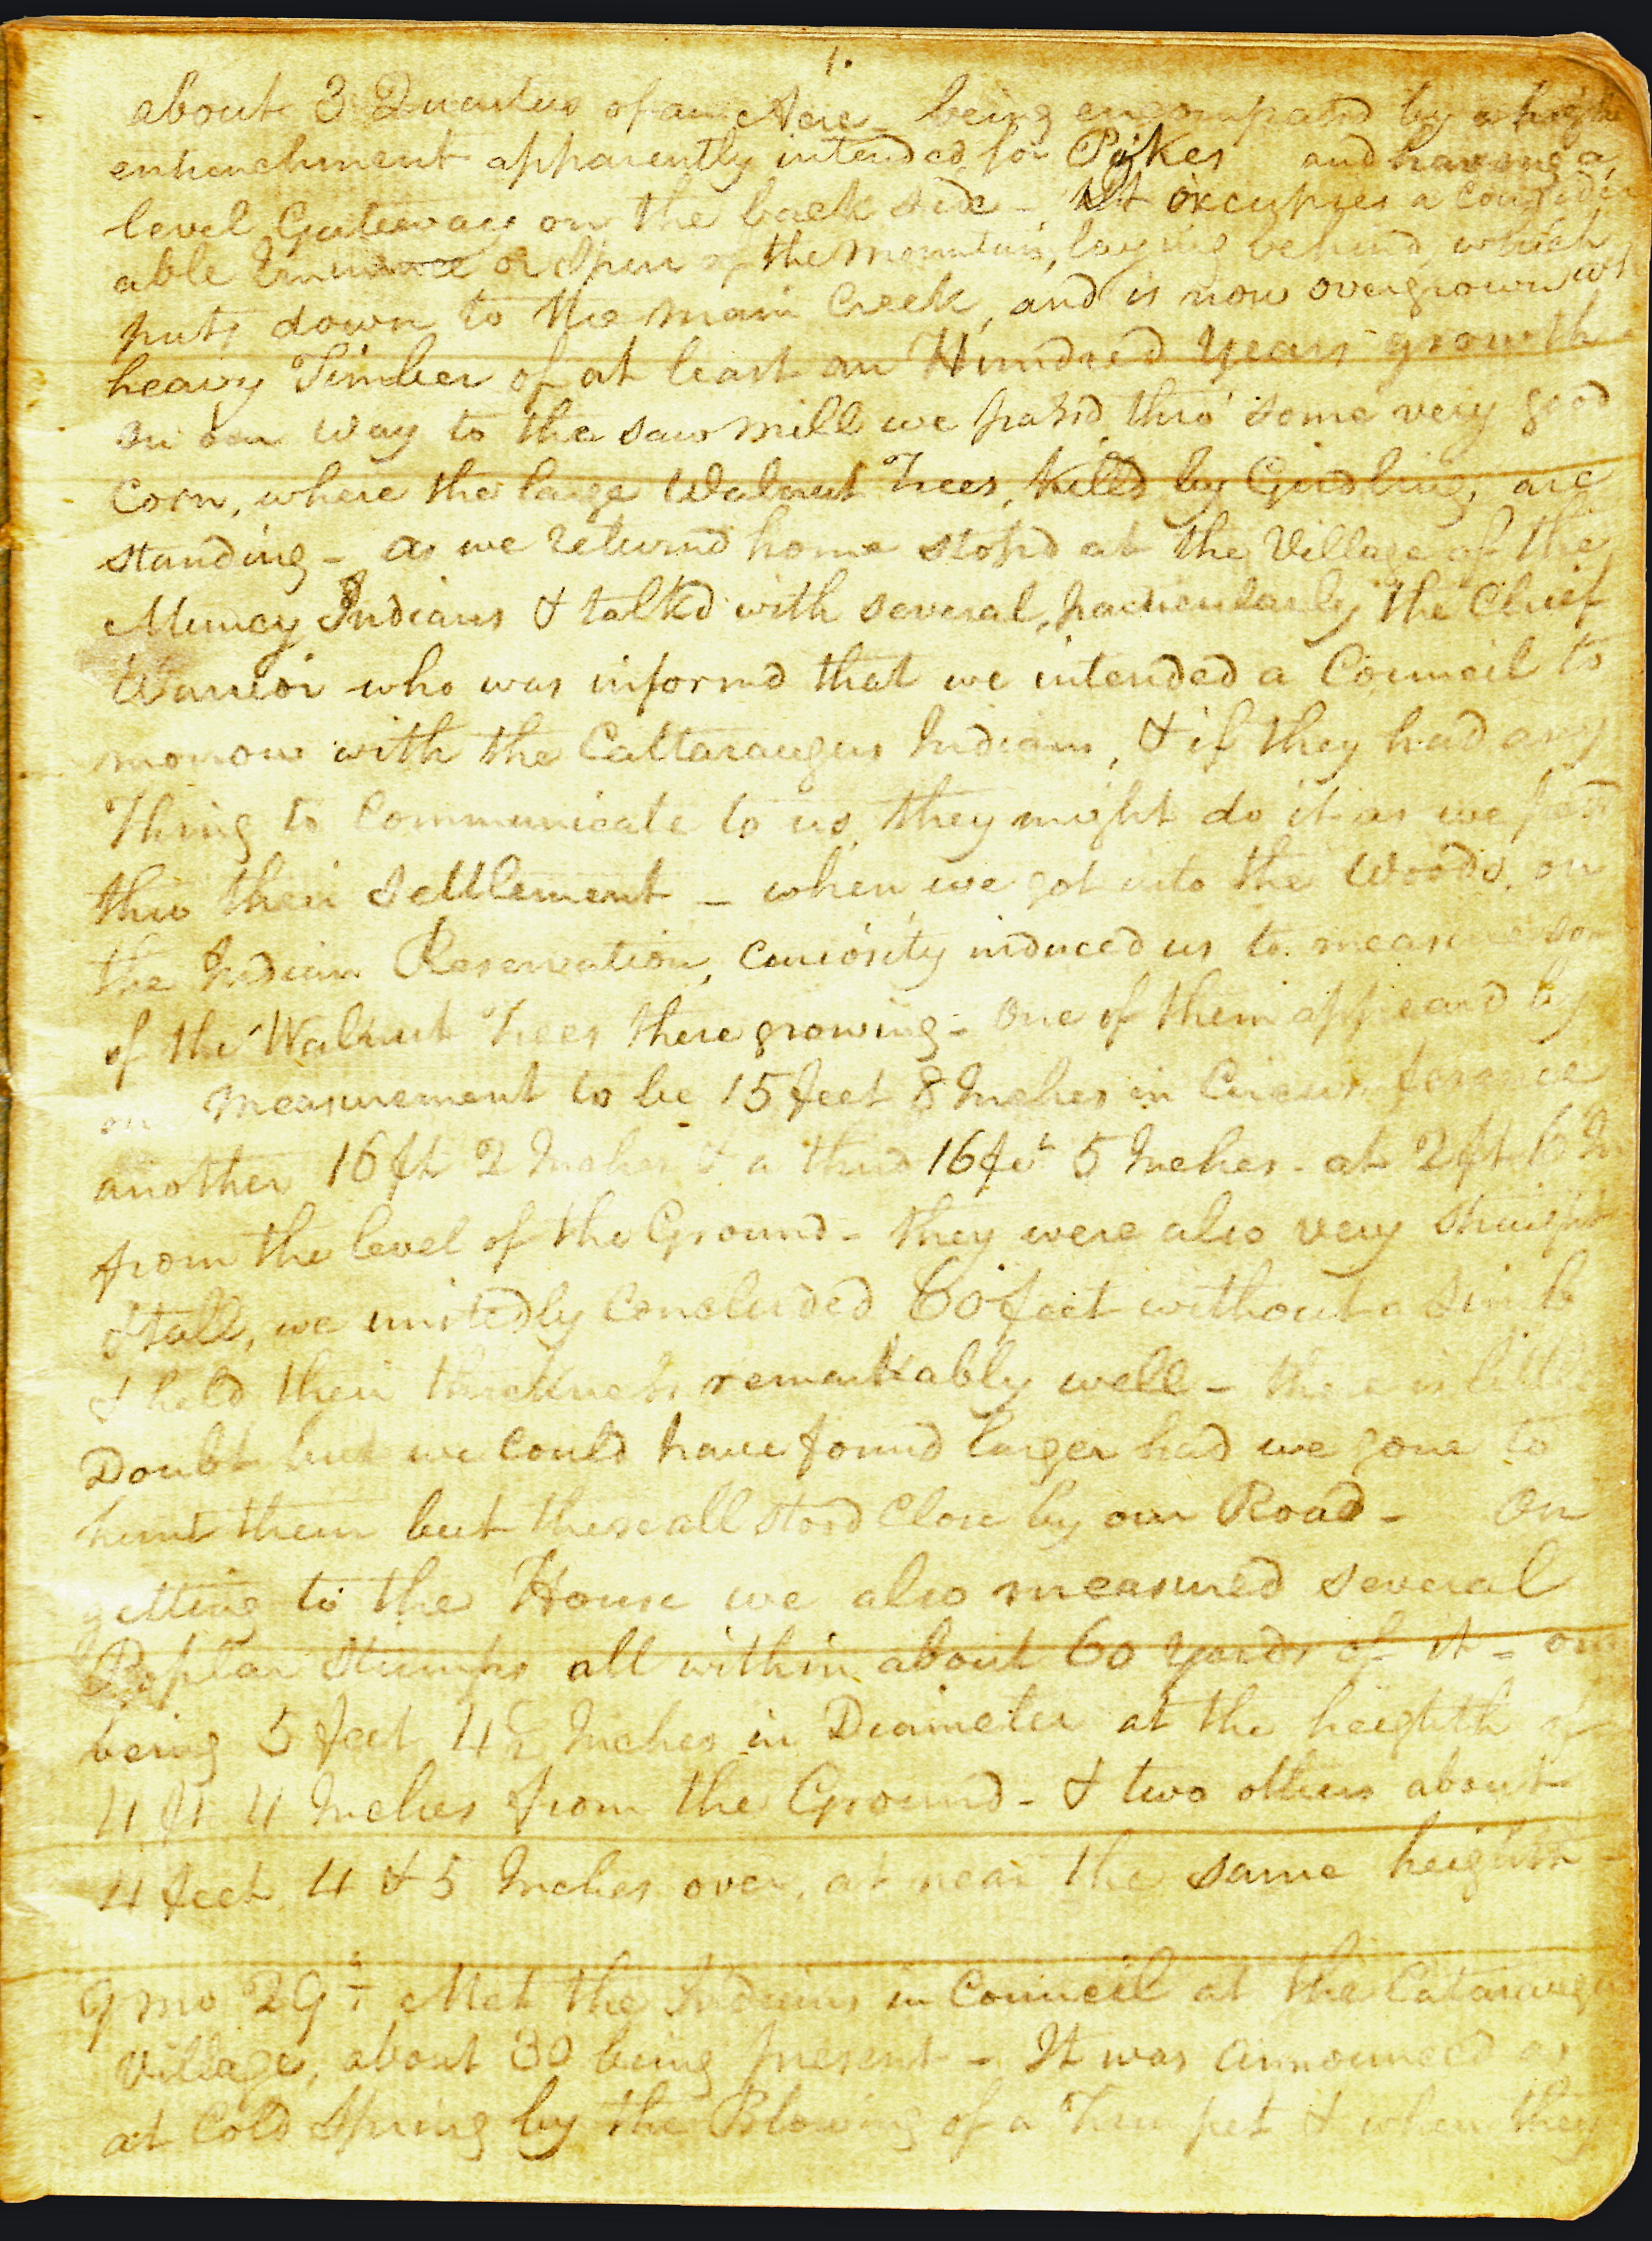 1.
about 3 Quarters of an Acre - being encompassd by a high
entrenchment apparently intended for Pikes and having a
level Gateway on the back side - It occupies a consider
able Eminence or Spur of the Mountain, laying behind, which
puts down to the main Creek, and is now overgrown with
heavy Timber of at least an Hundred Years growth
on our way to the saw mill we passd thro' some very good
Corn, where the large Walnut Trees, killd by Girdling, are
standing - as we returnd home stopd at the Village of the
Muncy Indians & talkd with several, particularly the Chief
Warrior who was informd that we intended a Council to
morrow with the Cattaraugus Indians, & if they had any
Thing to Communicate to us, they might do it as we passd
thro their Settlement - when we got into the Woods, on
the Indian Reservation, Curiosity induced us to measure some
of the Walnut Trees there growing - One of them appeard by
on measurement to be 15 feet 8 Inches in Circumference
another 16 ft 2 Inches & a third 16 feet 5 Inches - at 2 ft 6 In
from the level of the Ground - they were also very straight
& tall, we unitedly concluded 60 feet without a Limb
& held their thickness remarkably well - there is little
Doubt but we could have found larger had we gone to
hunt them but these all stood Close by our Road - On
getting to the House we also measured several
Poplar Stumps all within about 60 yards of it - one
being 5 feet 4½ Inches in Diameter at the heighth of
4 ft 4 Inches from the Ground - & two others about
4 feet 4 & 5 Inches over, at near the same heighth -
9 mo 29th Met the Indians in Council at the Cataraugus
Village, about 30 being present - It was announced as
at Cold Spring by the Blowing of a Trumpet & when they